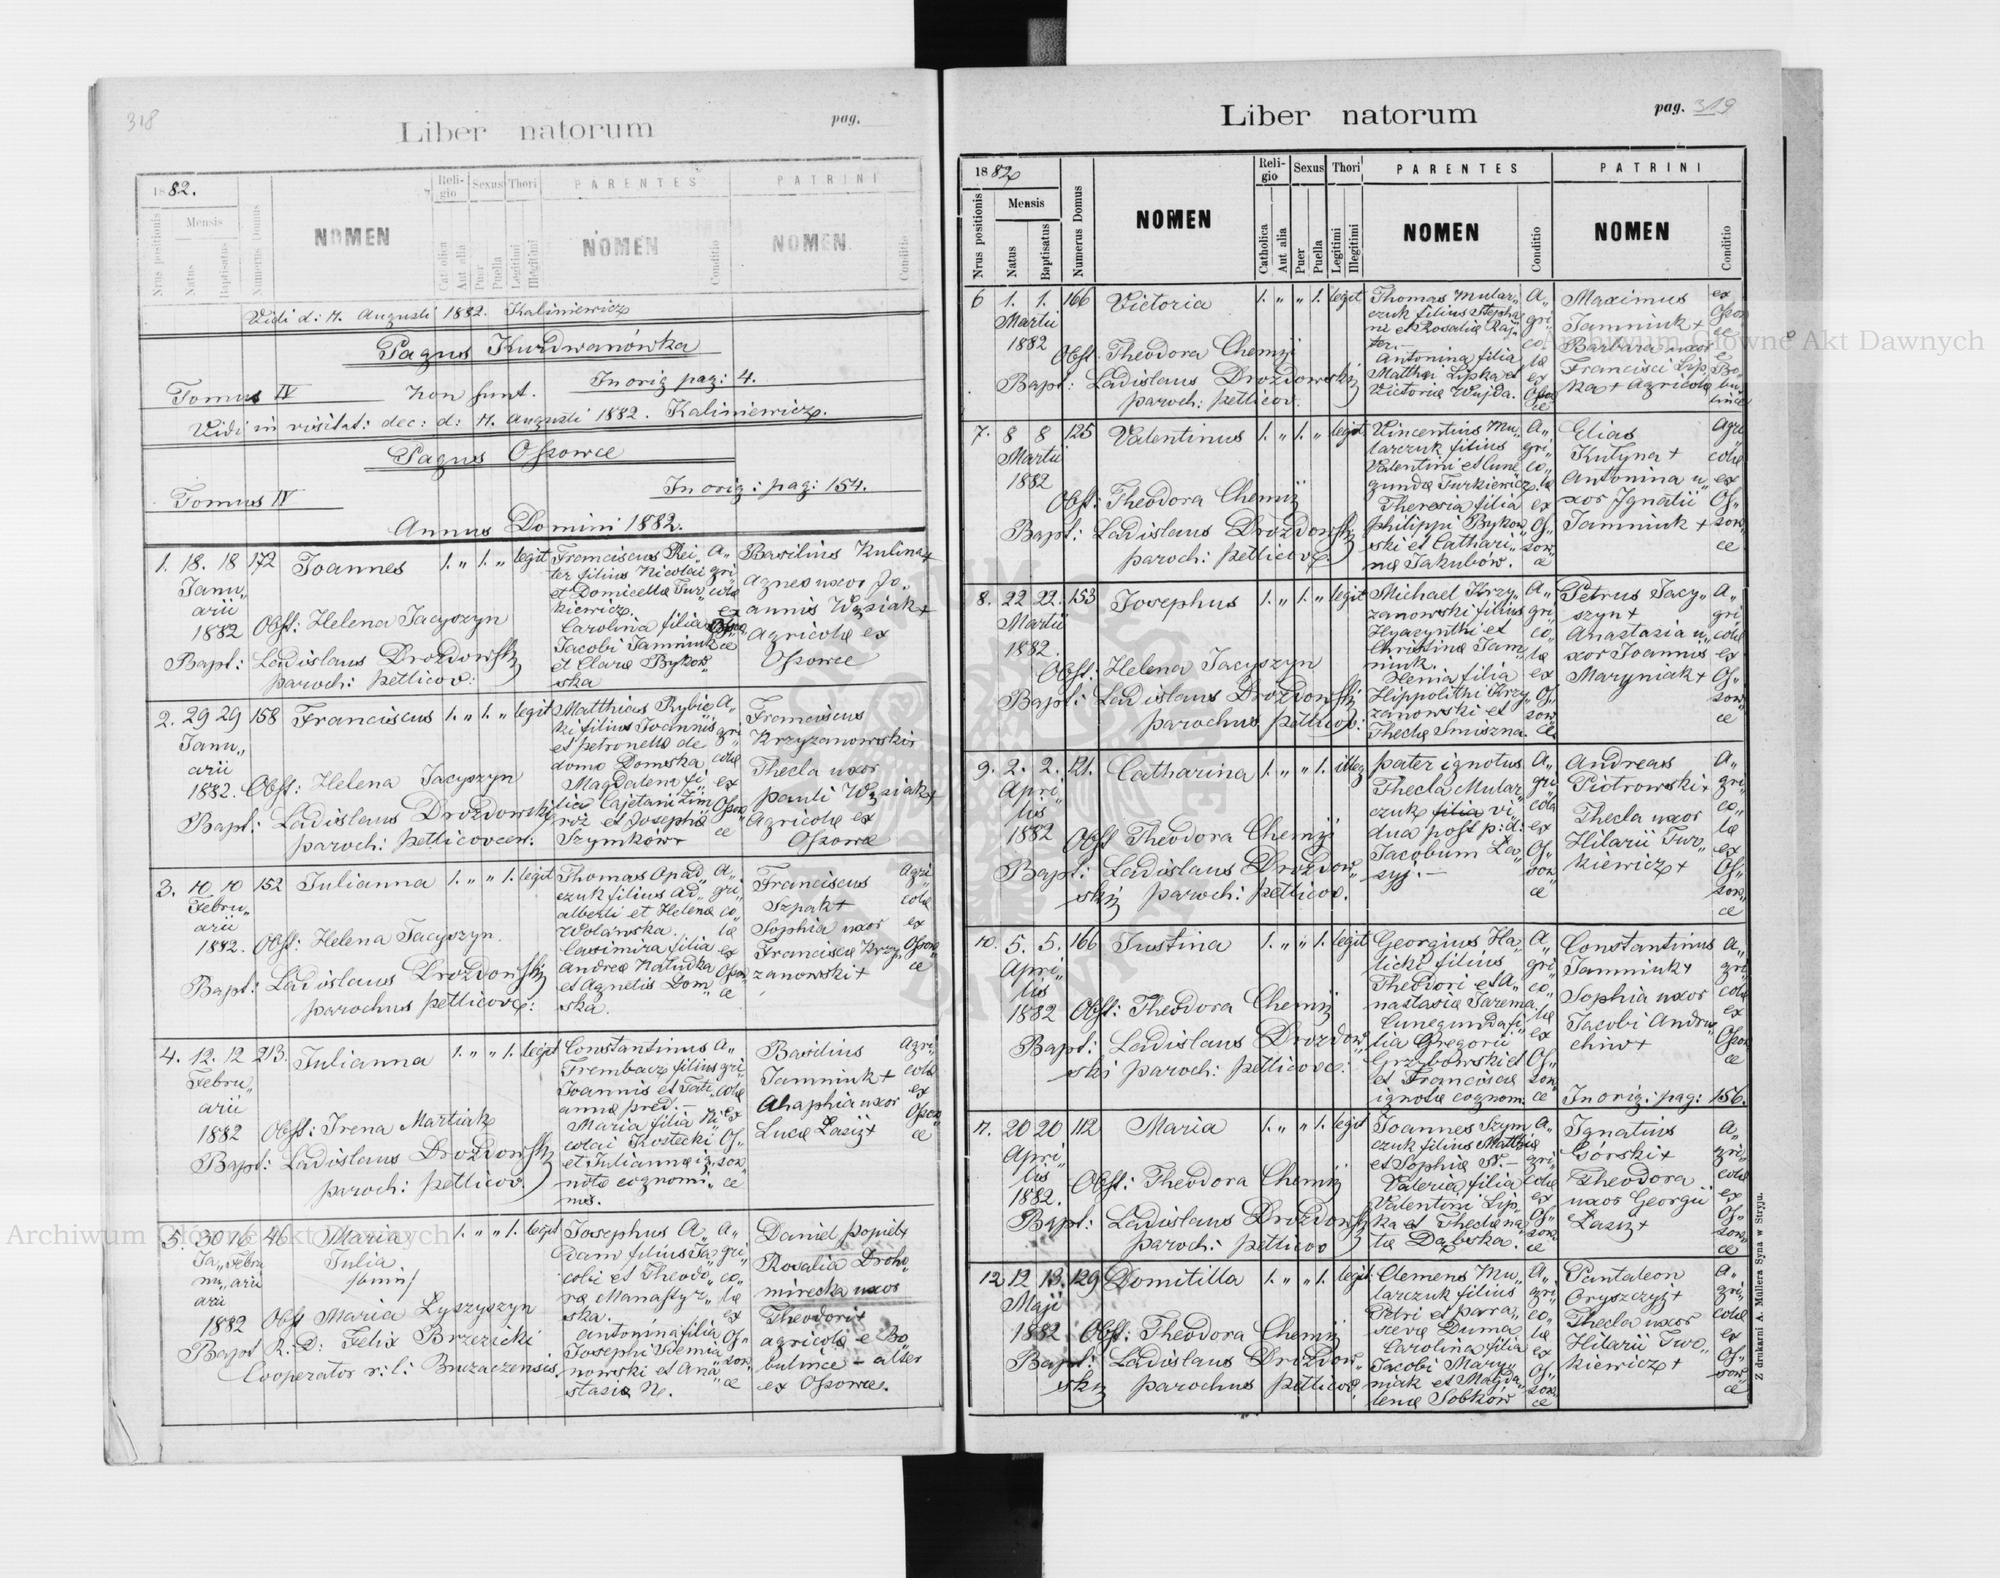 318
Liber natorum
pag.
1882.
Nrus positionis
Mensis
Natus
Baptisatus
Numerus Domus
NOMEN
Religio
Catholica
Aut alia
Sexus
Puer
Puella
Thori
Legitimi
Illegitimi
PARENTES
NOMEN
Conditio
PATRINI
NOMEN
Conditio
Vidi d: 17. Augusti 1882. Kaliniewicz
Pagus Kurdwanówka
Tomus IV non sunt. In orig pag: 4.
Vidi in visitat: dec: d: 17. Augusti 1882. Kaliniewicz.
Pagus Ossowce
Tomus IV
In orig: pag: 154.
Annus Domini 1882.
1. 18. 18 172 Joannes 1. „ 1. „ legit
Janu„
arii
1882 Obst: Helena Jacyszyn
Bapt: Ladislaus Drozdowski
paroch: petlicov:
Franciscus Rei„
ter filius Nicolai
et Domicella Tur„
kiewicz.
Carolina filia
Jacobi Jamniuk
et Clara Bykow„
ska
A„
gri„
colæ
ex
Basilius Kulina+
Agnes uxor Jo„
annis Wąsiak+
Agricolæ ex
Ossowce
2. 29 29 158 Franciscus 1. „ 1. „ legit
Janu„
arii
1882. Obst: Helena Jacyszyn
Bapt: Ladislaus Drozdowski
paroch: petlicovcen:
Matthias Rybic„
ki filius Joannis
et petronella de
domo Domska
Magdalena fi„
lia Cajetani Zim
roz et Josepha
Szymków
A„
gri„
colæ
ex
Ossow„
ce
Franciscus
Krzyzanowski+
Thecla uxor
pauli Wąsiak+
Agricolæ ex
Ossowce
3. 10. 10 152 Julianna 1. „ „ 1. legit
Febru„
arii
1882. Obst: Helena Jacyszyn.
Bapt: Ladislaus Drozdowski
parochus petlicovc:
Thomas Opad„
czuk filius Ad„
alberti et Helena
Wolanska.
Casimira filia
Andrea Kaludka
et Agnetis Dom„
ska.
A„
gri„
co„
læ
ex
Ossow
ce
Franciscus
Szpak+
Sophia uxor
Francisca Krzy„
zanowski+
Agri„
colæ
ex
Ossow„
ce
4. 12. 12 213. Julianna 1. „ „ 1. legit
Febru„
arii
1882 Obst: Irena Martiak
Bapt: Ladislaus Drozdowski
paroch: petlicov.
Constantinus
Trembacz filius
Joannis et Tati„
anna pred:
Maria filia Ni„
colai Kostecki
et Julianna ig„
noto cognomi„
nis.
A„
gri„
colæ
ex
Os„
sow„
ce
Basilius
Jamniuk+
Ahaphia uxor
Luca Lasiz+
Agri„
colæ
ex
Ossow
ce
5. 30 16 46 Maria 1. „ „ 1. legit
Ja„ Febru
nu„ arii
arii
Julia
1882 Obst Maria Łyszyszyn
Bapt R. D: Felix Brzezicki
Cooperator r: l: Buczaczensis.
Josephus A„
dam filius Ja„
cobi et Theodo„
ra Manastyr„
ska.
antonina filia
Josephi Siemia„
nowski et Ana„
stasia N.
A„
gri„
co„
læ
ex
Os„
sow„
ce
Daniel popiel+
Rosalia Droho„
mirecka uxor
Theodori+
agricolæ e Bo„
bulince – alter
ex Ossowce.
Liber natorum
pag. 319
1882
Nrus positionis
Mensis
Natus
Baptisatus
Numerus Domus
NOMEN
Religio
Catholica
Aut alia
Sexus
Puer
Puella
Thori
Legitimi
Illegitimi
PARENTES
NOMEN
Conditio
PATRINI
NOMEN
Conditio
6 1. 1. 166 Victoria 1. „ „ 1. legit
Martii
1882
Obst. Theodora Chemij
Bapt: Ladislaus Drozdowski
paroch: petlicov.
Thomas Mular„
czuk filius Stepha„
ni et Rosalia Raj„
ter.
Antonina filia
Matthæi Lipka et
Victoria Wujda.
A„
gri„
co„
læ
ex
Ossow
ce
Maximus
Jamniuk+
Barbara uxor
Francisci Lip„
ka+ Agricolæ
ex
Ossow
ce
e
Bo„
bu„
lince
7. 8 8 125 Valentinus 1. „ 1. „ legit
Martii
1882
Obst: Theodora Chemij
Bapt: Ladislaus Drozdowski
paroch: petlicovc.
Vincentius Mu„
larczuk filius
Valentini et Cune„
gunda Turkiewicz.
Theresia filia
philippi Bykow„
ski et Cathari„
na Jakubów.
A„
gri„
co„
læ
ex
Os„
sow„
ce
Elias
Kutyna+
Antonina u„
xor Ignatii
Jamniuk+
Agri
colæ
ex
Os„
sow„
ce
8. 22 22. 153 Josephus 1. „ 1. „ legit
Martii
1882.
Obst: Helena Jacyszyn
Bapt: Ladislaus Drozdowski
parochus petlicov:
Michael Krzy„
zanowski filius
Hyacynthi et
Christina Jam„
niuk.
Xenia filia
Hippolithi Krzy„
zanowski et
Thecla Smiszna.
A„
gri„
co„
læ
ex
Os„
sow„
ce
Petrus Jacy„
szyn+
Anastasia u„
xor Joannis
Maryniak+
A„
gri„
colæ
ex
Os„
sow„
ce
9. 2. 2. 121. Catharina 1. „ „ 1. illeg
Apri„
lis
1882 Obst Theodora Chemij
Bapt: Ladislaus Drozdow„
ski paroch: petlicov.
pater ignotus
Thecla Mular„
czuk filia vi„
dua post p: d:
Jacobum La„
syj. –
A„
gri„
cola
ex
Os„
sow
ce
Andreas
Piotrowski+
Thecla uxor
Hilarii Two„
kiewicz+
A„
gri„
co„
læ
ex
Os„
sow„
ce
10. 5. 5. 166 Justina 1. „ „ 1. legit
Apri„
lis
1882 Obst: Theodora Chemij
Bapt: Ladislaus Drozdow„
ski paroch: petlicovc:
Georgius Ha„
licki filius
Theodori et A„
nastasia Jarema.
Cunegunda fi„
lia Gregorii
Grzybowski et
et Francisca
ignota cognom:
A„
gri„
co„
læ
ex
Os„
sow„
ce
Constantinus
Jamniuk+
Sophia uxor
Jacobi Andru„
chiw+
A„
gri„
colæ
ex
Ossow
ce
In orig: pag: 156.
11. 20 20 112 Maria 1. „ „ 1. legit
Apri„
lis
1882. Obst: Theodora Chemij
Bapt: Ladislaus Drozdowski
paroch: petlicov
Joannes Szym
czuk filius Matthia
et Sophia N. –
Valeria filia
Valentini Lip„
ka et Thecla na„
ta Dąbska.
A„
gri„
colæ
ex
Os„
sow
ce
Ignatius
Górski+
Theodora
uxor Georgii
Lasiz+
A„
gri„
colæ
ex
Os„
sow„
ce
12 12 13. 129 Domitilla 1. „ „ 1. legit
Maji
1882 Obst: Theodora Chemij
Bapt: Ladislaus Drozdow„
ski parochus petlicov:
Clemens Mu„
larczuk filius
Petri et para„
sceva Duma
Carolina filia
Jacobi Mary„
niak et Magda„
lena Sobków
A„
gri„
co„
læ
ex
Os„
sow„
ce
Pantaleon
Oryszczyż+
Thecla uxor
Hilarii Two„
kiewicz+
A„
gri„
colæ
ex
Os„
sow„
ce
Z drukarni A. Mullera Syna w Stryju.
Archiwum Główne Akt Dawnych
Archiwum Główne Akt Dawnych